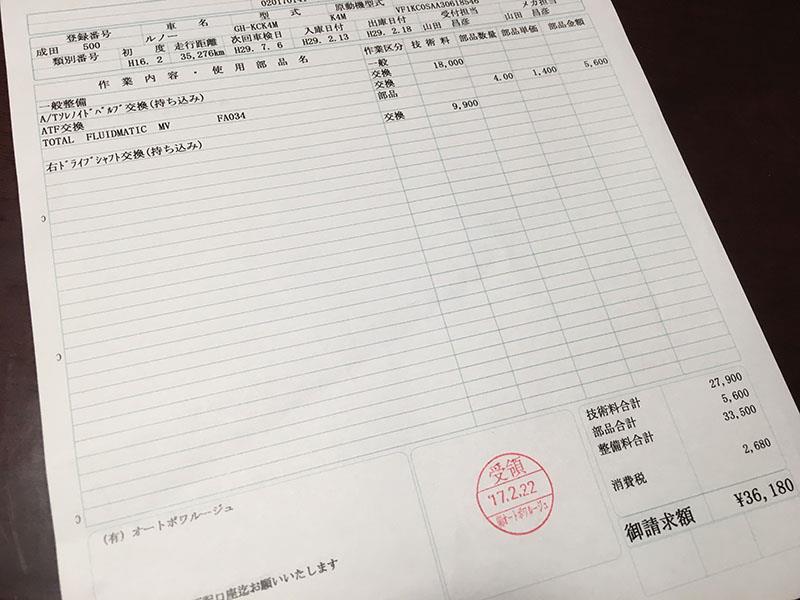 登録番号 車 名 型 式 原動機型式 VF1KC0SAA30618546 メカ担当
成田 500 ルノー GH-KCK4M K4M 受付担当 山田 昌彦
類別番号 初 度 走行距離 次回車検日 入庫日付 出庫日付 山田 昌彦
H16. 2 35,276km H29. 7. 6 H29. 2.13 H29. 2.18
作 業 内 容 ・ 使 用 部 品 名 作業区分 技 術 料 部品数量 部品単価 部品金額
一般整備 一般
A/Tソレノイドバルブ交換(持ち込み) 交換 18,000
ATF交換 交換
TOTAL FLUIDMATIC MV FA034 部品 4.00 1,400 5,600
右ドライブシャフト交換(持ち込み) 交換 9,900
技術料合計 27,900
部品合計 5,600
整備料合計 33,500
消費税 2,680
御請求額 ¥36,180
受領
'17.2.22
㈲オートボワルージュ
(有) オートボワルージュ
口座迄お願いいたします